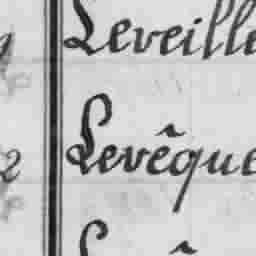 Leveillé
2 Levêque